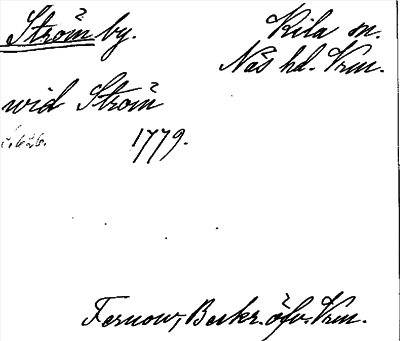 Ström by. Kila sn.
Näs hd. Vrm.
wid Ström
s. 626. 1779.
Fernow, Beskr. öfv. Vrm.